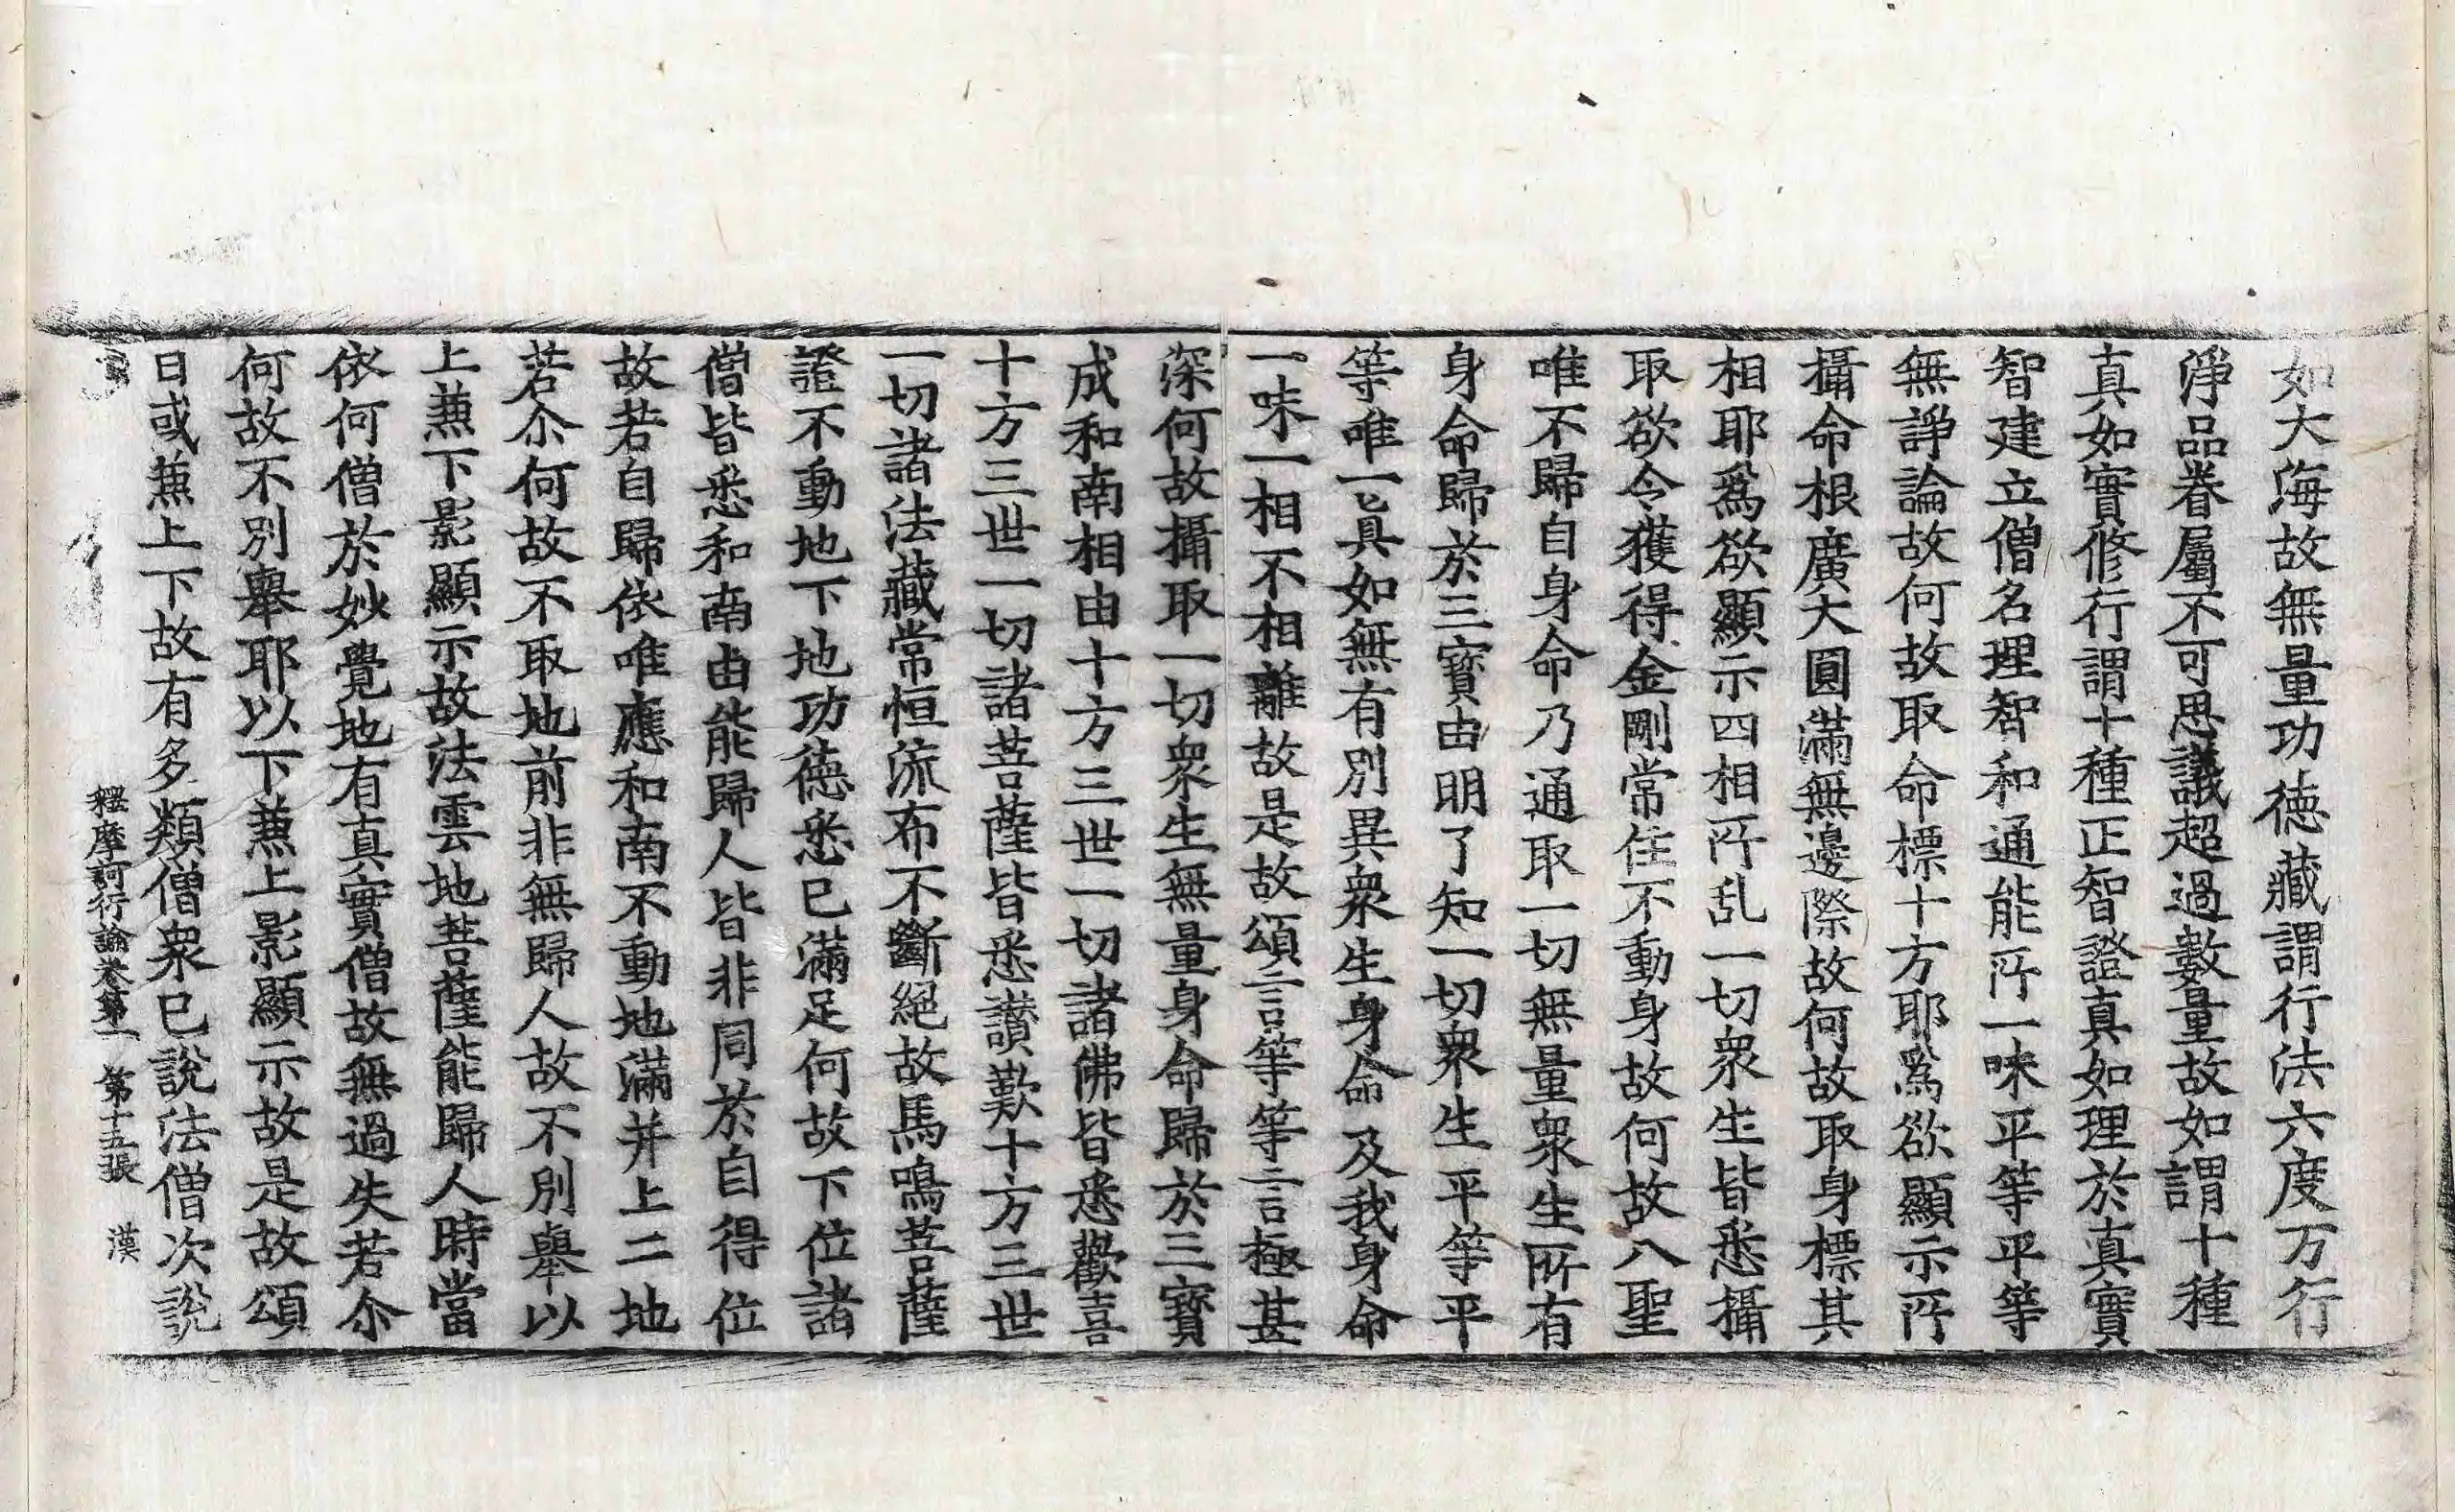 如大海故無量功徳藏謂行法六度万行
淨品眷屬不可思議超過數量故如謂十種
真如實修行謂十種正智證真如理於真實
智建立僧名理智和通能所一味平等平等
無諍論故何故取命標十方耶爲欲顯示所
攝命根廣大圓滿無邊際故何故取身標其
相耶爲欲顯示四相所乱一切衆生皆悉攝
取欲令獲得金剛常住不動身故何故八聖
唯不歸自身命乃通取一切無量衆生所有
身命歸於三寶由明了知一切衆生平等平
等唯一真如無有別異衆生身命及我身命
一味一相不相離故是故頌言等等言極甚
深何故攝取一切衆生無量身命歸於三寶
成和南相由十方三世一切諸佛皆悉歡喜
十方三世一切諸菩薩皆悉讃歎十方三世
一切諸法藏常恒流布不斷絕故馬鳴菩薩
證不動地下地功徳悉已滿足何故下位諸
僧皆悉和南由能歸人皆非同於自得位
故若自歸依唯應和南不動地滿并上二地
若尒何故不取地前非無歸人故不別舉以
上兼下影顯示故法雲地菩薩能歸人時當
依何僧於妙覺地有真實僧故無過失若尒
何故不別舉耶以下兼上影顯示故是故頌
曰或兼上下故有多類僧衆已說法僧次說
釋摩訶衍論卷第一　第十五張　漢